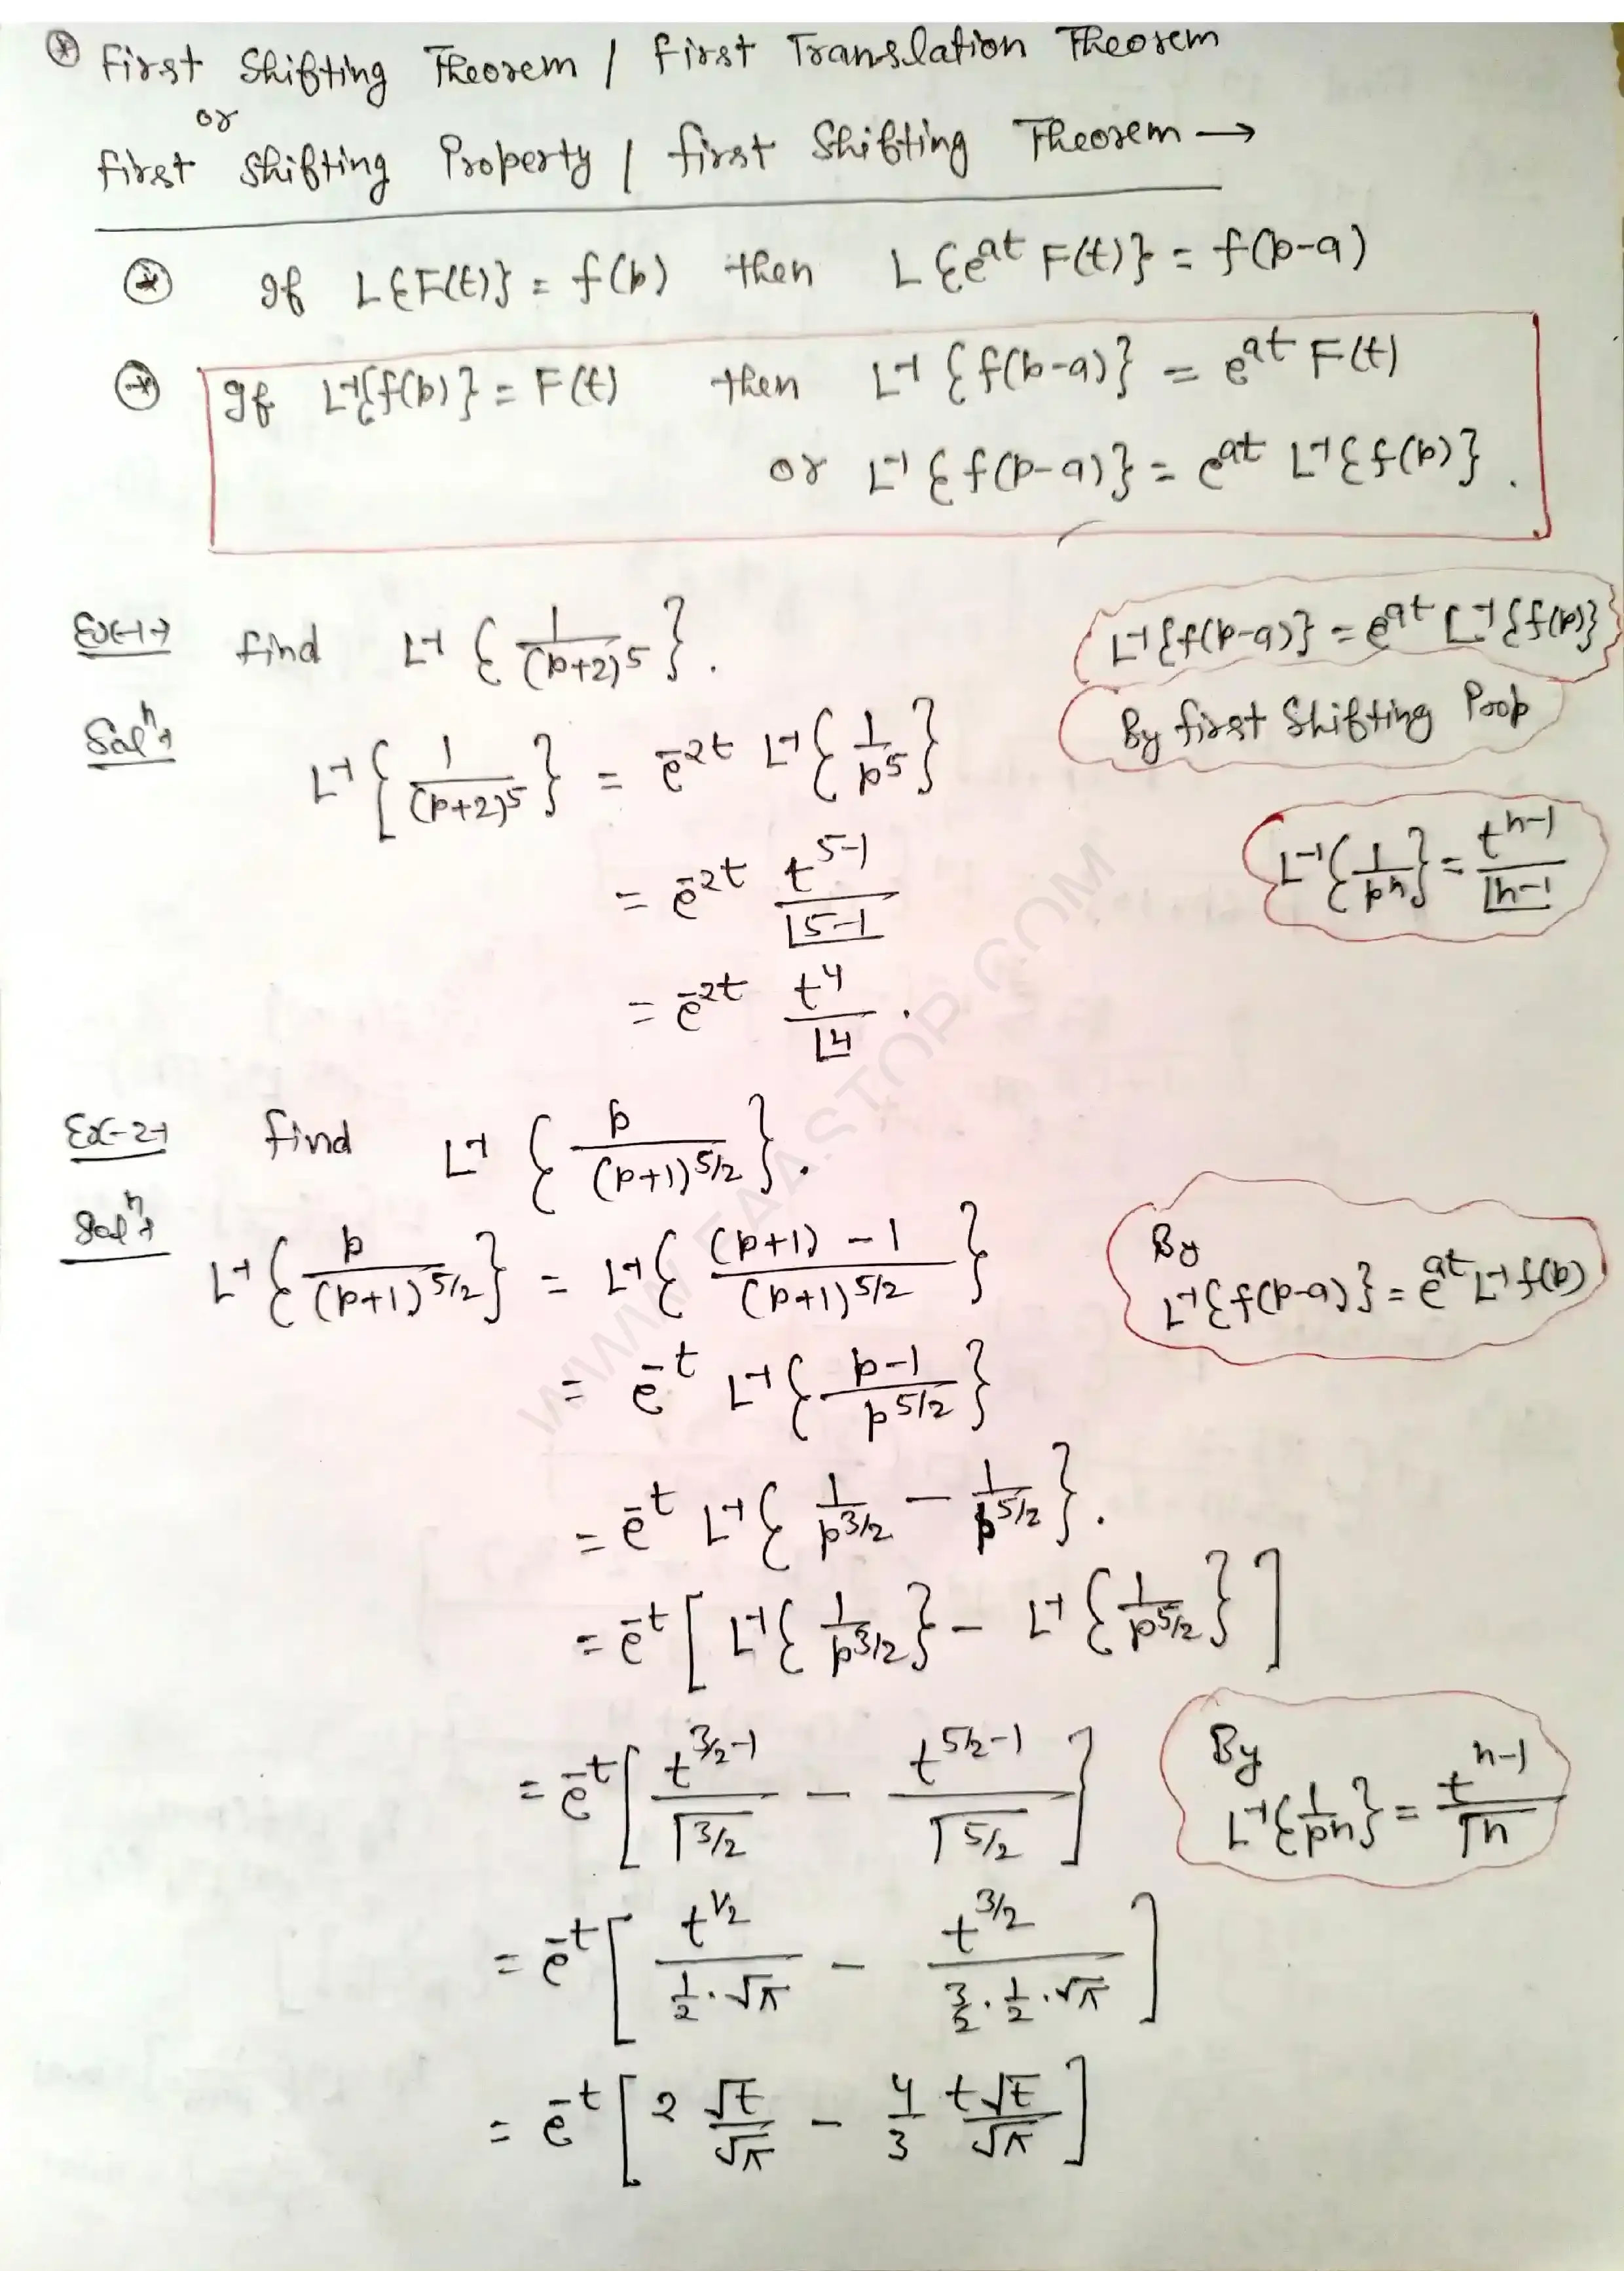 ⊛ First Shifting Theorem / First Translation Theorem
or
First Shifting Property / First Shifting Theorem →
⊛ If L{F(t)} = f(p) then L{e^{at} F(t)} = f(p-a)
⊛ If L⁻¹{f(p)} = F(t) then L⁻¹{f(p-a)} = e^{at} F(t)
or L⁻¹{f(p-a)} = e^{at} L⁻¹{f(p)}.
Ex-1→ find L⁻¹{1/(p+2)^5}.
L⁻¹{f(p-a)} = e^{at} L⁻¹{f(p)}
By first Shifting Prop
Solⁿ→ L⁻¹{1/(p+2)^5} = e^{-2t} L⁻¹{1/p^5}
L⁻¹{1/p^n} = t^{n-1}/|n-1
= e^{-2t} t^{5-1}/|5-1
= e^{-2t} t^4/|4.
Ex-2→ find L⁻¹{p/(p+1)^{5/2}}.
Solⁿ→ L⁻¹{p/(p+1)^{5/2}} = L⁻¹{((p+1) - 1)/(p+1)^{5/2}}
By
L⁻¹{f(p-a)} = e^{at} L⁻¹ f(p)
= e^{-t} L⁻¹{(p-1)/p^{5/2}}
= e^{-t} L⁻¹{1/p^{3/2} - 1/p^{5/2}}.
= e^{-t} [L⁻¹{1/p^{3/2}} - L⁻¹{1/p^{5/2}}]
= e^{-t} [t^{3/2-1}/Γ3/2 - t^{5/2-1}/Γ5/2]
By
L⁻¹{1/p^n} = t^{n-1}/Γn
= e^{-t} [t^{1/2}/(1/2·√π) - t^{3/2}/(3/2·1/2·√π)]
= e^{-t} [2 √t/√π - 4/3 t√t/√π]
WWW.FAASTOP.COM